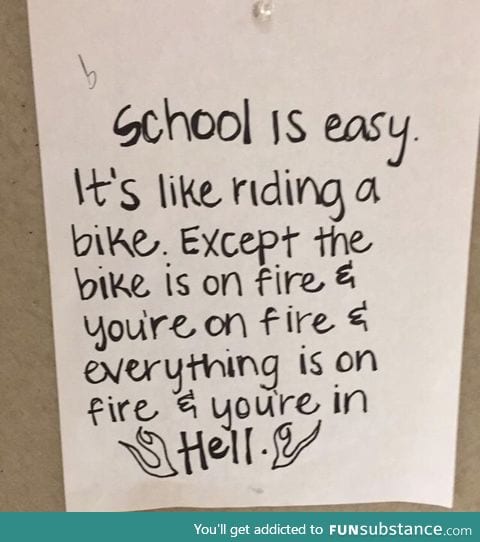 b
School is easy.
It's like riding a
bike. Except the
bike is on fire &
you're on fire &
everything is on
fire & you're in
Hell.
You'll get addicted to FUNsubstance.com